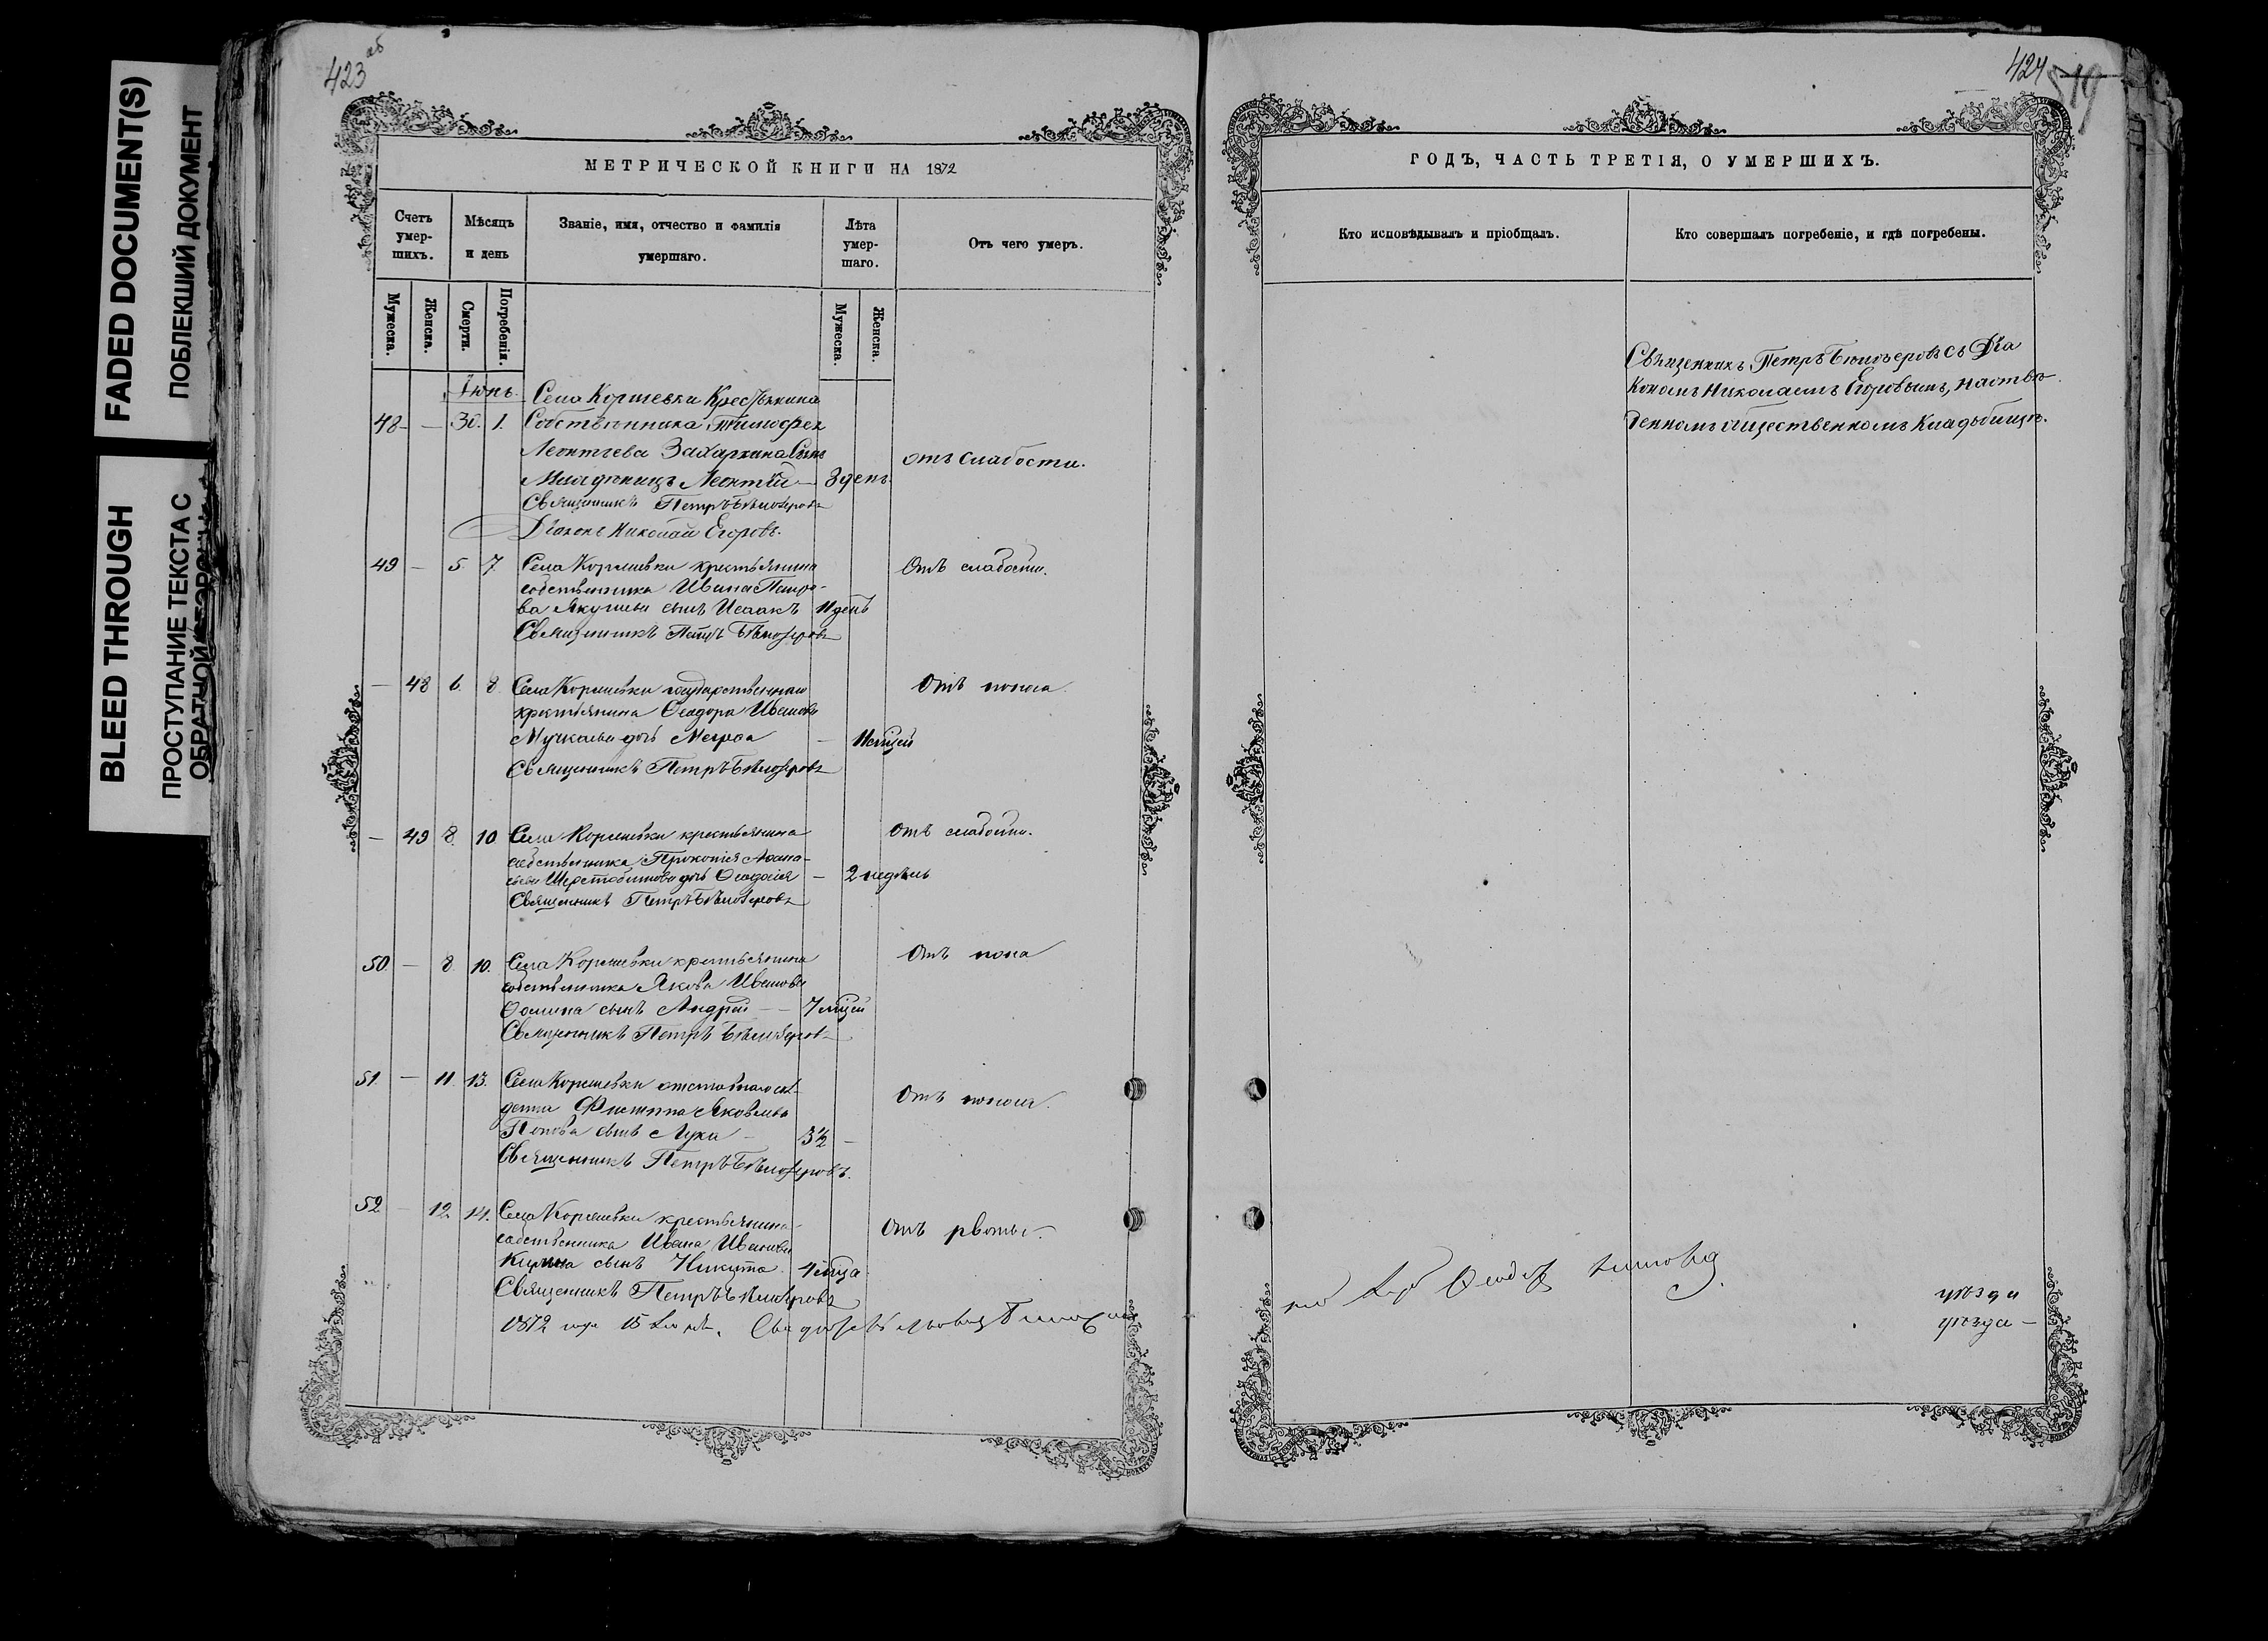 FADED DOCUMENT(S)
ПОБЛЕКШИЙ ДОКУМЕНТ
BLEED THROUGH
ПРОСТУПАНИЕ ТЕКСТА С
ОБРАТНОЙ СТОРОНЫ
423 об
МЕТРИЧЕСКОЙ КНИГИ НА 1872
Счетъ умер- шихъ.
Мѣсяцъ и день
Званіе, имя, отчество и фамилія умершаго.
Лѣта умер- шаго.
Отъ чего умеръ.
Мужеска.
Женска.
Смерти.
Погребенія.
Мужеска.
Женска.
Іюнь. Села Коршевки Крестьянина
48 — 30. 1. Собственника Тимофея
Леонтьева Захаркина Сынъ
отъ слабости.
Младенецъ Леонтій — 3 день
Священникъ Петръ Бѣлозеровъ
Діаконъ Николай Егоровъ.
49 — 5 7. Села Коршевки крестьянина Отъ слабости.
собственника Ивана Петро-
ва Якушева сынъ Исаакъ 11 день
Священникъ Петръ Бѣлозеровъ
— 48 6. 8 Села Коршевки государственнаго Отъ поноса.
крестьянина Ѳеодора Иванова
дочь —
Священникъ Петръ Бѣлозеровъ
— 49 8. 10 Села Коршевки крестьянина Отъ слабости.
собственника Прокопія Аѳана-
сьева Шерстобитова дочь Ѳеодосія — 2 недѣль
Священникъ Петръ Бѣлозеровъ
50 — 8 10. Села Коршевки крестьянина Отъ
собственника Якова Иванова
Ѳомина сынъ Андрей — 7 мѣцей
Священникъ Петръ Бѣлозеровъ
51. — 11. 13. Села Коршевки отставнаго сол-
дата Филиппа Яковлева Отъ поноса.
Попова сынъ Лука — 3½ —
Священникъ Петръ Бѣлозеровъ.
52 — 12. 14. Села Коршевки крестьянина
собственника Ивана Иванова Отъ рвоты.
сынъ Никита 4 мѣца
Священникъ Петръ Бѣлозеровъ
1872 года 15
424
519
ГОДЪ, ЧАСТЬ ТРЕТІЯ, О УМЕРШИХЪ.
Кто исповѣдывалъ и пріобщалъ.
Кто совершалъ погребеніе, и гдѣ погребены.
Священникъ Петръ Бѣлозеровъ съ Діа
кономъ Николаемъ Егоровымъ, на отве
денномъ общественномъ кладбищѣ.
уѣзда
уѣзда —